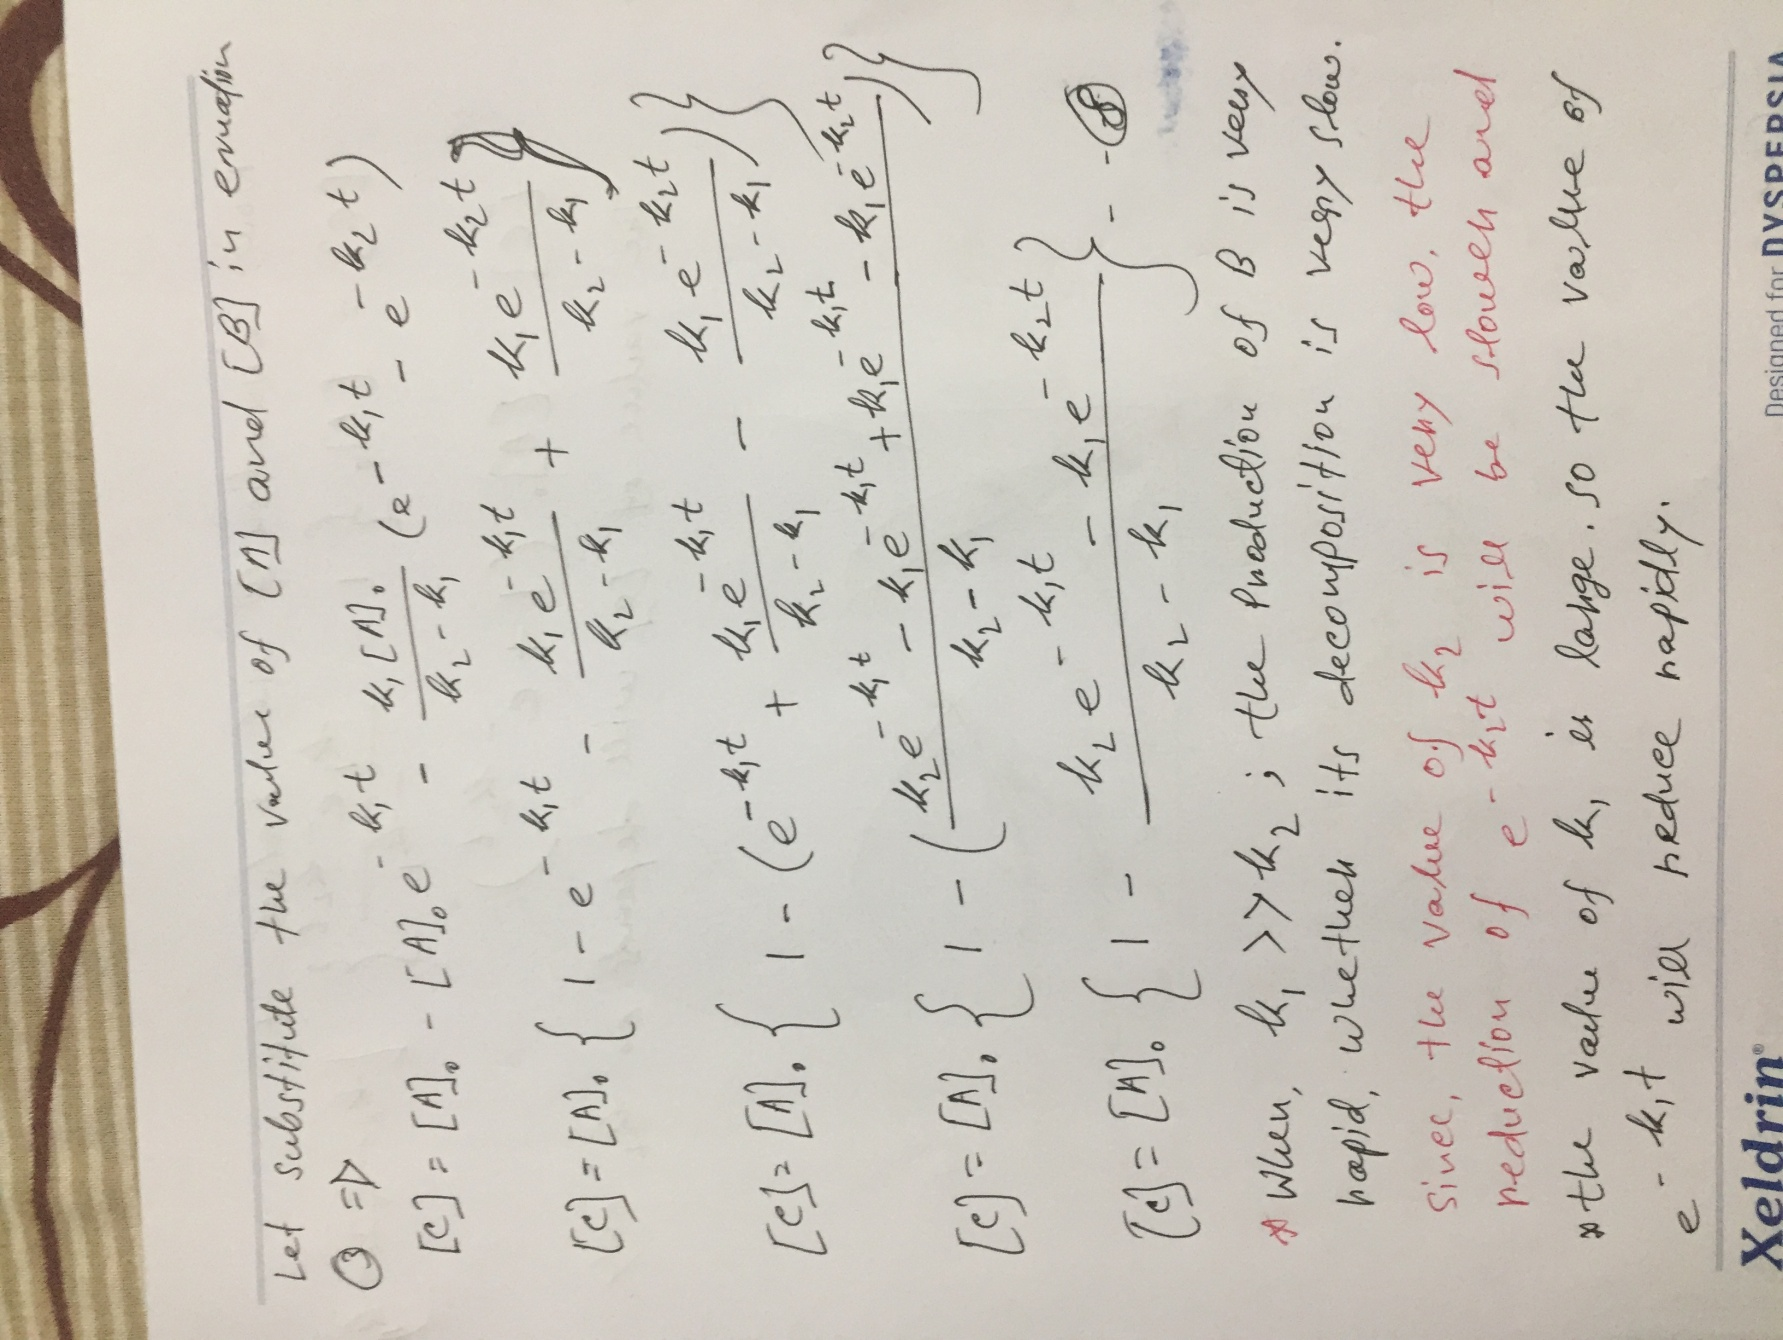 Let substitute the value of [A] and [B] in equation
③ ⇒
[C] = [A]₀ - [A]₀e^{-k₁t} - \frac{k₁[A]₀}{k₂-k₁} (e^{-k₁t} - e^{-k₂t})
[C] = [A]₀ { 1 - e^{-k₁t} - \frac{k₁e^{-k₁t}}{k₂-k₁} + \frac{k₁e^{-k₂t}}{k₂-k₁} }
[C] = [A]₀ { 1 - (e^{-k₁t} + \frac{k₁e^{-k₁t}}{k₂-k₁} - \frac{k₁e^{-k₂t}}{k₂-k₁}) }
[C] = [A]₀ { 1 - (\frac{k₂e^{-k₁t} - k₁e^{-k₁t} + k₁e^{-k₁t} - k₁e^{-k₂t}}{k₂-k₁}) }
[C] = [A]₀ { 1 - \frac{k₂e^{-k₁t} - k₁e^{-k₂t}}{k₂-k₁} } - - ⑧
* When, k₁ >> k₂ ; the Production of B is very
rapid, whether its decomposition is very slow.
Since, the value of k₂ is very low, the
reduction of e^{-k₂t} will be slower and
* the value of k₁ is large. so the value of
e^{-k₁t} will reduce rapidly.
Xeldrin® Designed for DYSPEPSIA